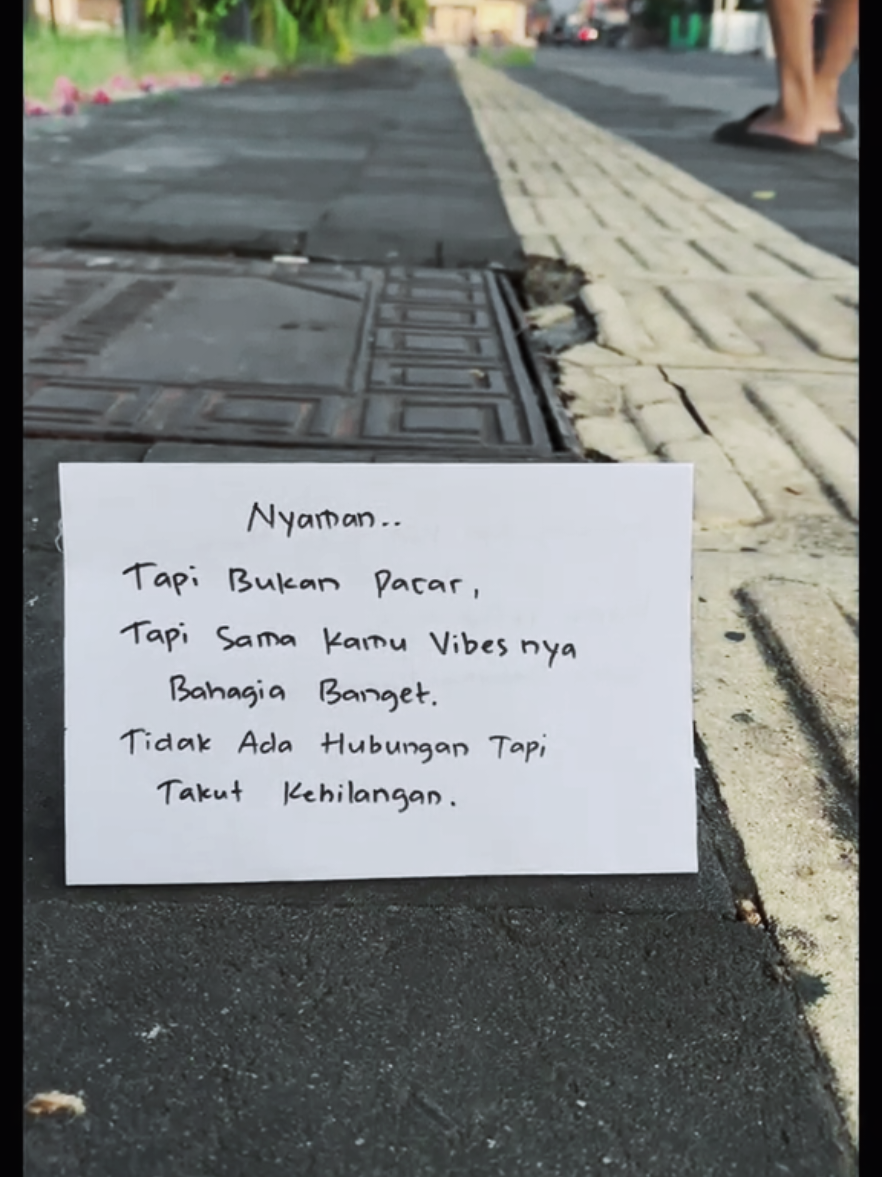 Nyaman..
Tapi Bukan Pacar,
Tapi Sama Kamu Vibes nya
Bahagia Banget.
Tidak Ada Hubungan Tapi
Takut Kehilangan.